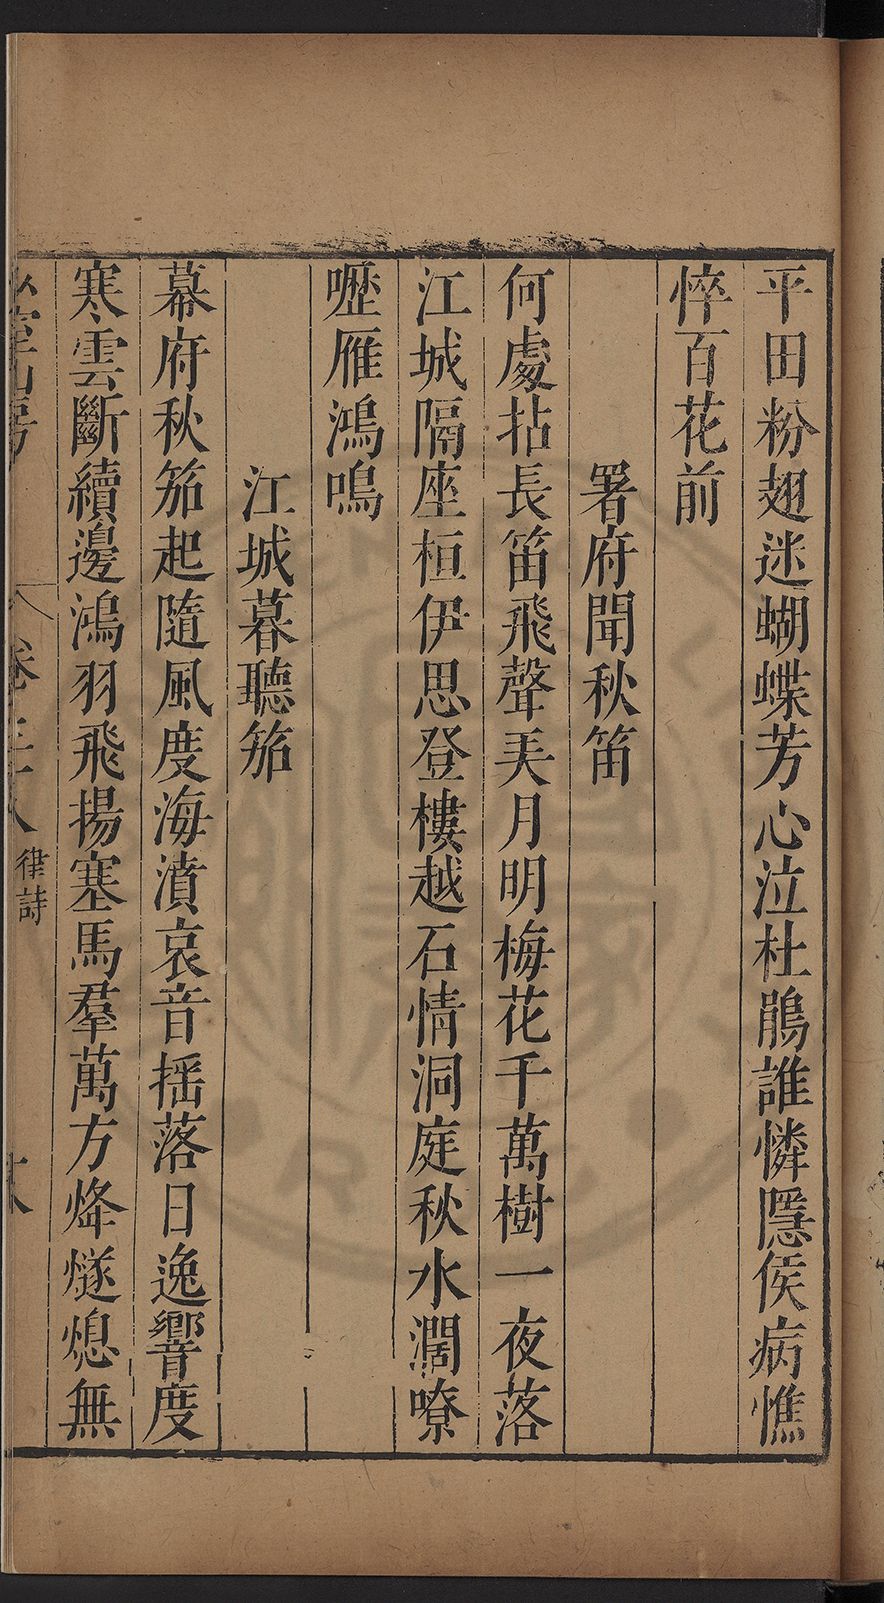 平田粉翅迷蝴蝶芳心泣杜鵑誰憐隱侯病憔
悴百花前
署府聞秋笛
何處拈長笛飛聲美月明梅花千萬樹一夜落
江城隔座桓伊思登樓越石情洞庭秋水濶嘹
嚦雁鴻鳴
江城暮聽笳
幕府秋笳起隨風度海濆哀音揺落日逸響度
寒雲斷續邊鴻羽飛揚塞馬羣萬方烽燧熄無
律詩